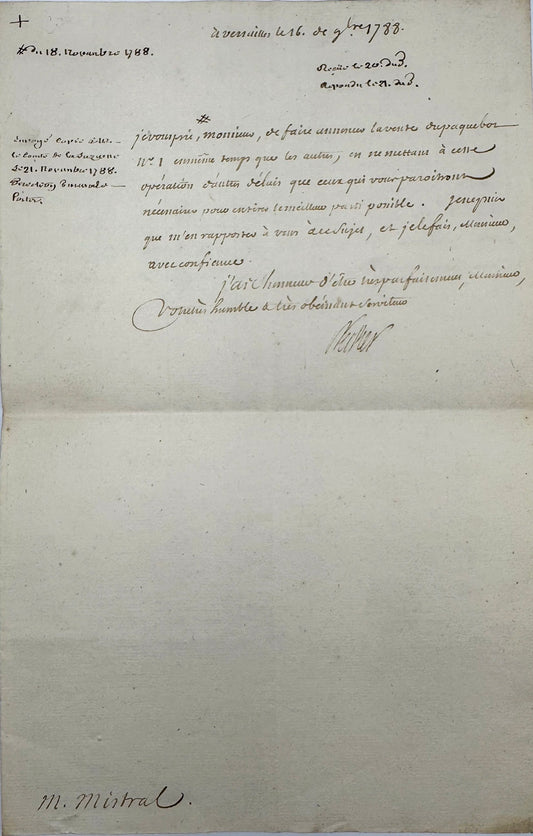 +
à versailles le 16. de 9bre 1788.
# du 18. Novembre 1788.
Reçue le 20. dud.
Repondu le 21. dud.
#
Envoyé Copie à M.
le Comte de la
le 21. Novembre 1788.
je vous prie, monsieur, de faire annoncer la vente du paquebot
N.o 1 en même temps que les autres, en ne mettant à cette
opération d'autres délais que ceux qui vous paroîtront
nécessaires pour en tirer le meilleur parti possible. Je ne puis
que m'en rapporter à vous à ce sujet, et je le fais, Monsieur,
avec confiance.
j'ai l'honneur d'être très parfaitement, Monsieur,
Votre très humble & très obéissant Serviteur
Necker
M. Mistral.